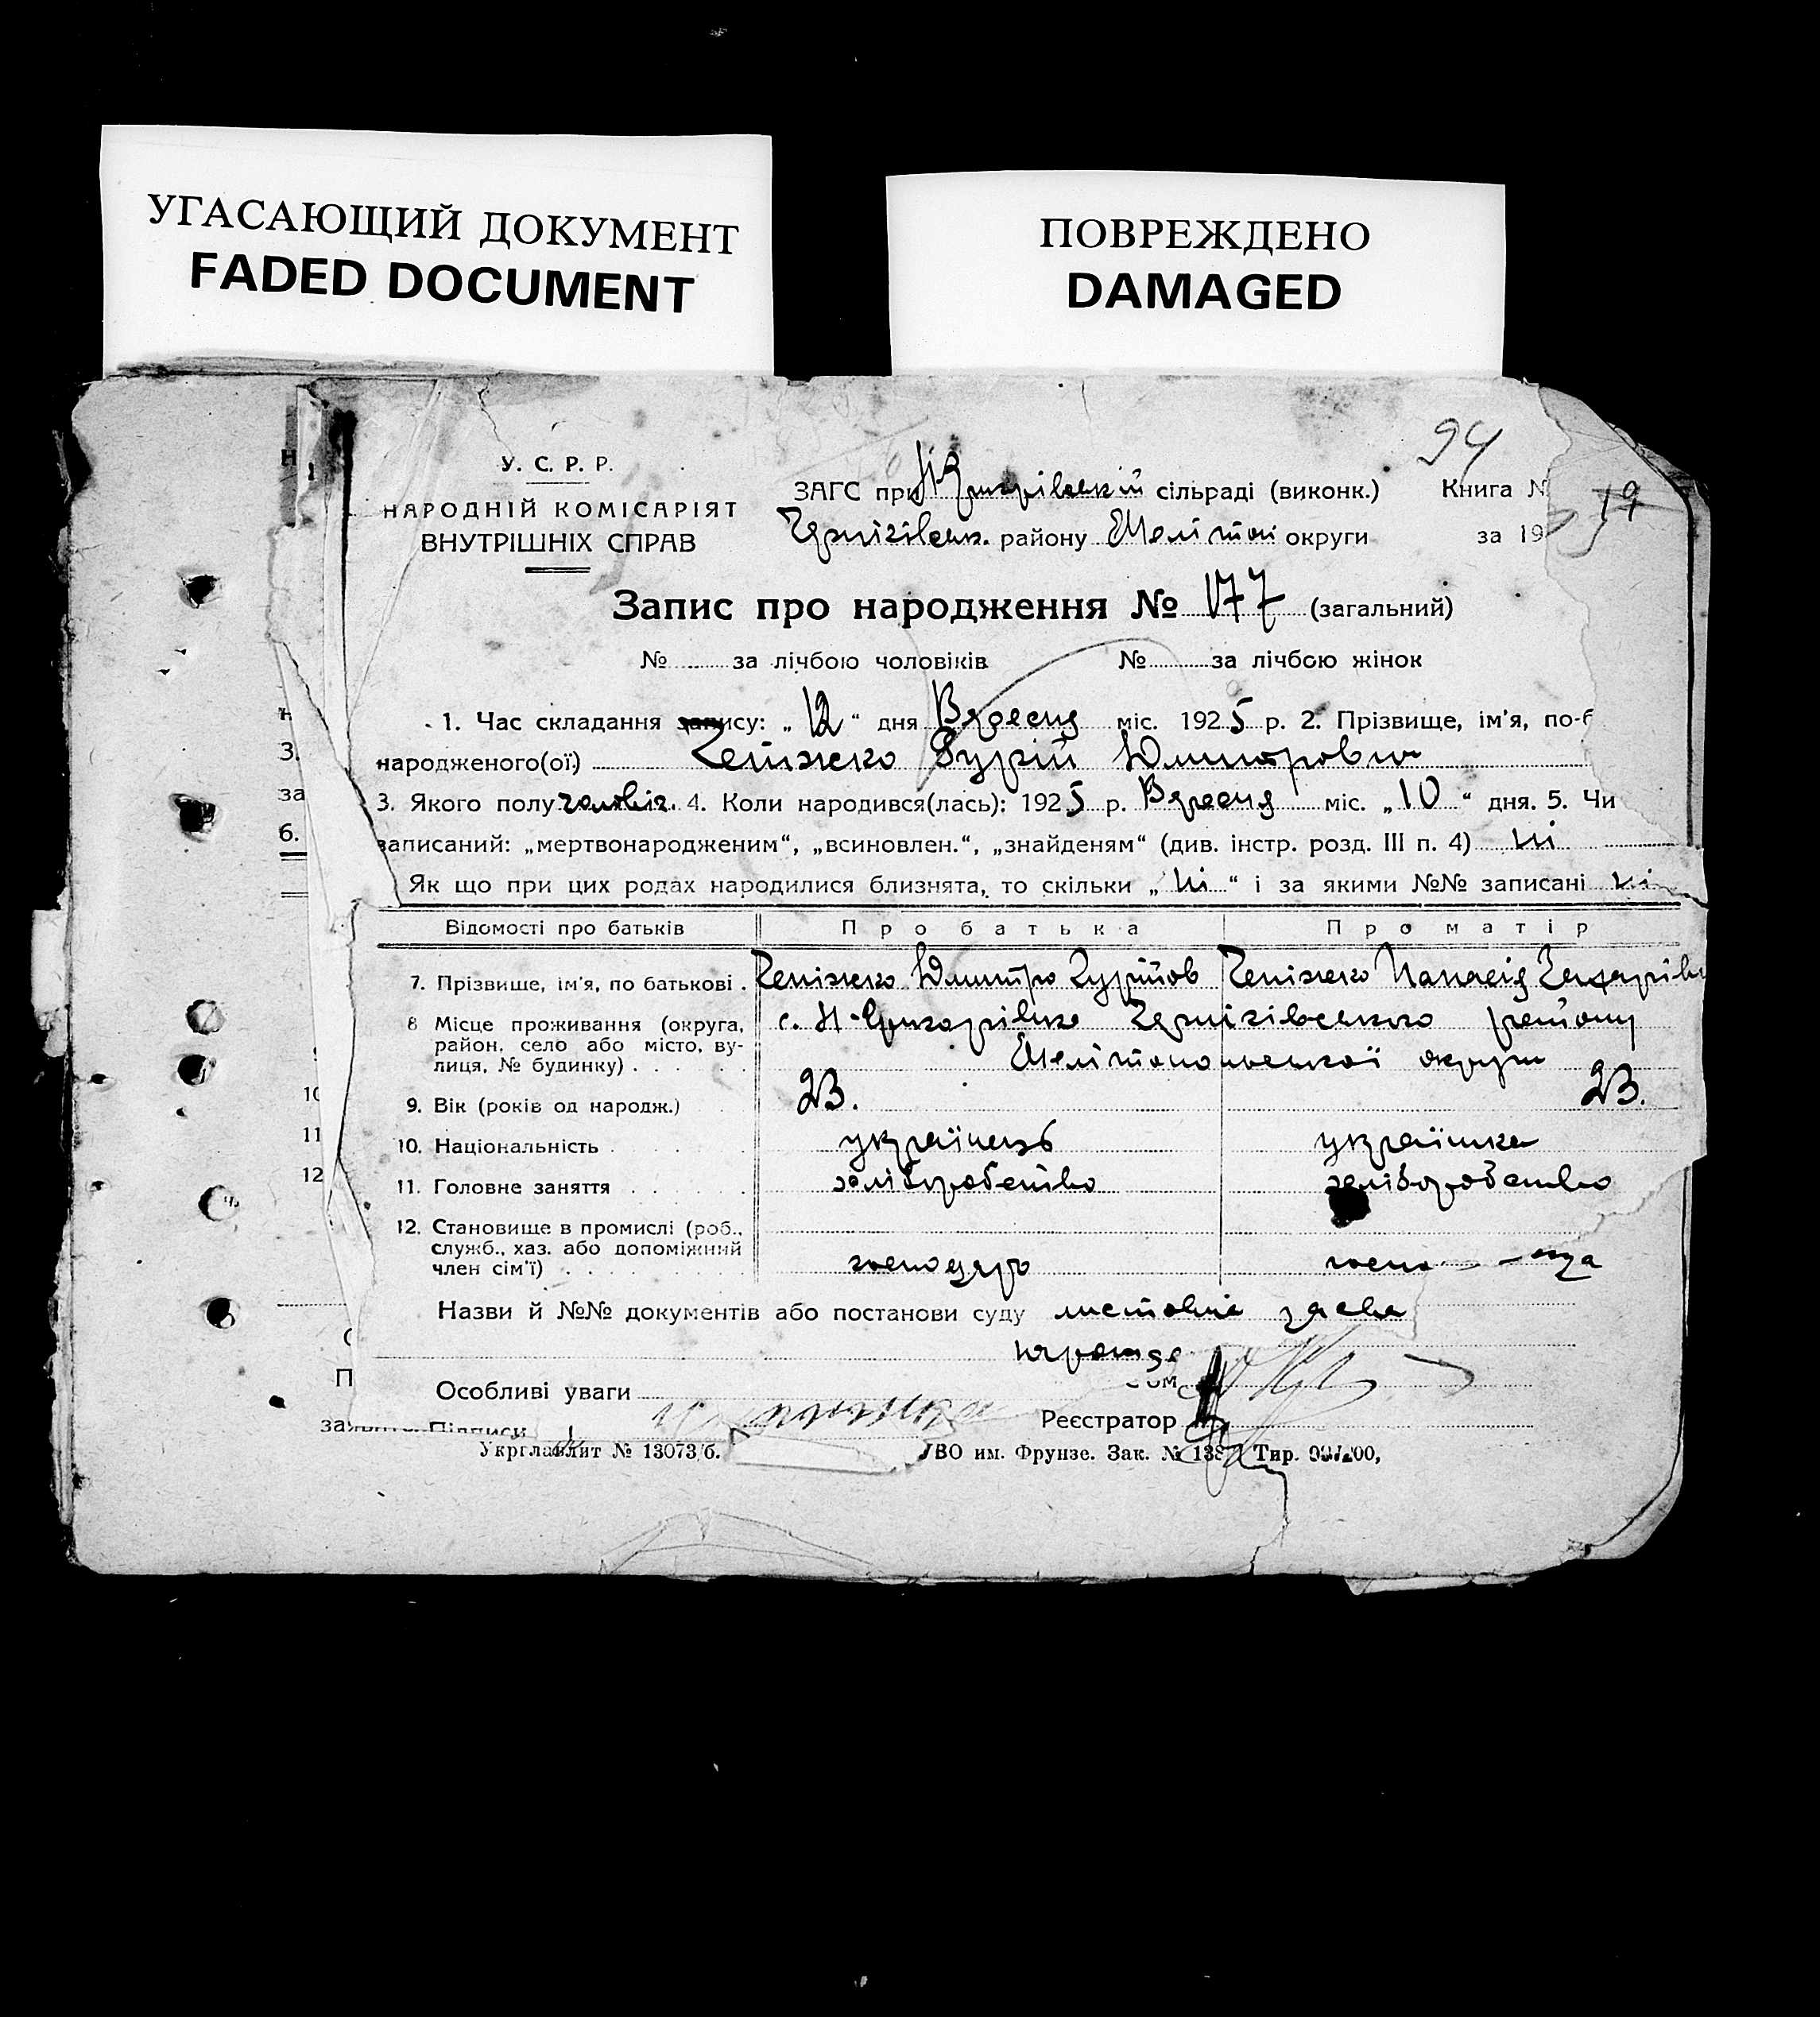 УГАСАЮЩИЙ ДОКУМЕНТ
FADED DOCUMENT
ПОВРЕЖДЕНО
DAMAGED
94
У. С. Р. Р.
НАРОДНІЙ КОМІСАРІЯТ
ВНУТРІШНІХ СПРАВ
ЗАГС при сільраді (виконк.) Книга № 19
Чернігівськ. району Меліт округи за 19
Запис про народження № 177 (загальний)
№ за лічбою чоловіків № за лічбою жінок
1. Час складання запису: „ 12 “ дня Вересня міс. 1925 р. 2. Прізвище, ім'я, по-б
народженого(ої) Чепіжко Гурій Дмитрович
3. Якого полу чоловіч. 4. Коли народився(лась): 1925 р. Вересня міс. „ 10 “ дня. 5. Чи
записаний: „мертвонародженим“, „всиновлен.“, „знайденям“ (див. інстр. розд. III п. 4) ні
Як що при цих родах народилися близнята, то скільки „ ні “ і за якими №№ записані ні
Відомості про батьків Про батька Про матір
7. Прізвище, ім'я, по батькові . Чепіжко Дмитро Гурійов Чепіжко Панасія Захарівн
8 Місце проживання (округа, район, село або місто, вулиця, № будинку) . . . . с. Н-Григорівка Чернігівського району
Мелітопольської округи
9. Вік (років од народж.) 23. 23.
10. Національність . українець українка
11. Головне заняття . . . . . хліборобство хліборобство
12. Становище в промислі (роб., служб., хаз. або допоміжний член сім'ї) . . . . господарь
Назви й №№ документів або постанови суду заява
Особливі уваги
Реєстратор
Підписи
Укрглавлит № 13073/б. УВО им. Фрунзе. Зак. № 138 Тир.